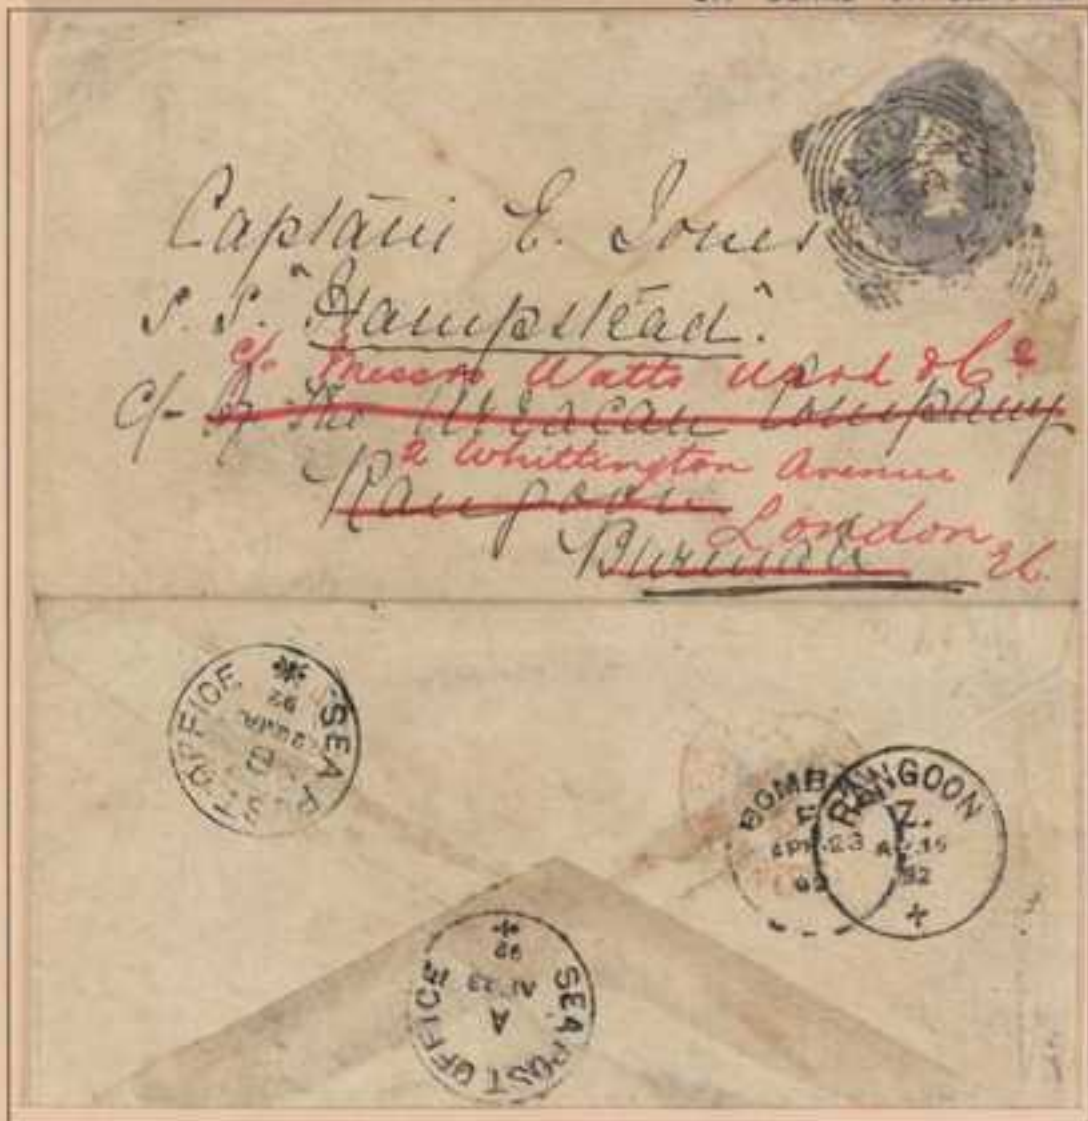 Captain E. Jones
S. S. "Hampstead".
c/o Messrs Watts Ward & Co
c/- The Arracan Company
2 Whittington Avenue
Rangoon
London
Burmah E.C.
SEA POST OFFICE
B
92
BOMBAY
APR. 23
92
RANGOON
Z.
AP. 15
92
SEA POST OFFICE
A
AP. 23
92